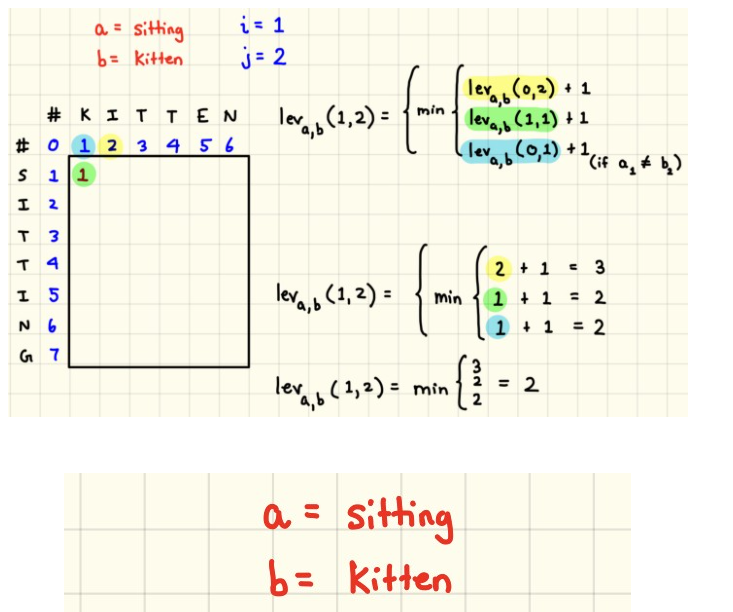 a = sitting
b = kitten
i = 1
j = 2
# K I T T E N
# 0 1 2 3 4 5 6
S 1 1
I 2
T 3
T 4
I 5
N 6
G 7
lev a,b (1,2) = { min { lev a,b (0,2) + 1
lev a,b (1,1) + 1
lev a,b (0,1) + 1 (if a₁ ≠ b₂)
lev a,b (1,2) = { min { 2 + 1 = 3
1 + 1 = 2
1 + 1 = 2
lev a,b (1,2) = min { 3 2 2 = 2
a = sitting
b = kitten